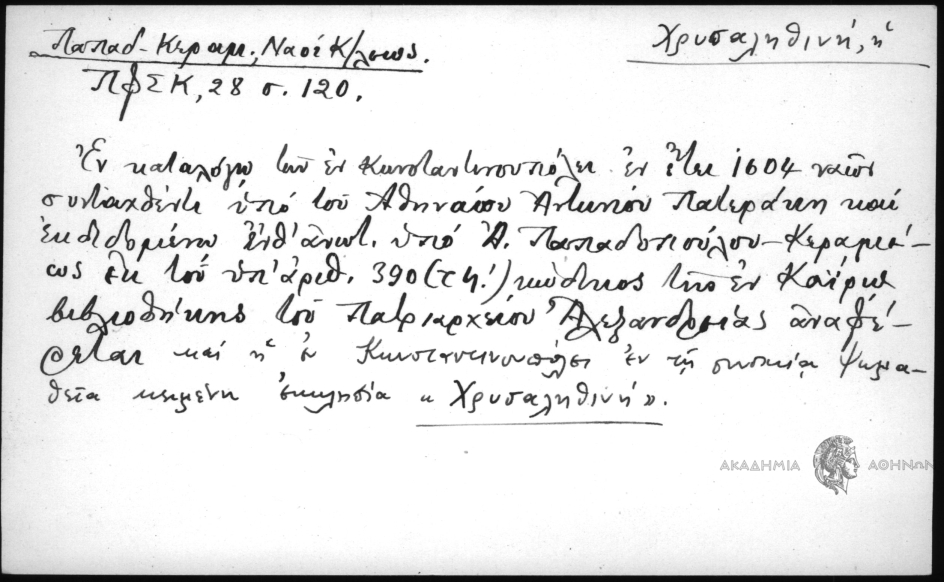 Παπαδ-Κεραμ., Ναοί Κ/λεως.
Χρυσαληθινή, ἡ
ΠΦΣΚ, 28 σ. 120.
Ἐν καταλόγῳ τῶν ἐν Κωνσταντινουπόλει ἐν ἔτει 1604 ναῶν
συνταχθέντι ὑπό τοῦ Ἀθηναίου Ἀντωνίου Πατεράκη καί
ἐκδιδομένῳ ἐνθ' ἀνωτ. ὑπό Ἀ. Παπαδοπούλου-Κεραμέ-
ως ἐκ τοῦ ὑπ' ἀριθ. 390 κώδικος τῆς ἐν Καΐρῳ
βιβλιοθήκης τοῦ Πατριαρχείου Ἀλεξανδρείας ἀναφέ-
ρεται καί ἡ ἐν Κωνσταντινουπόλει ἐν τῇ συνοικίᾳ Ψωμα-
θεῖα κειμένη ἐκκλησία «Χρυσαληθινή».
ΑΚΑΔΗΜΙΑ ΑΘΗΝΩΝ